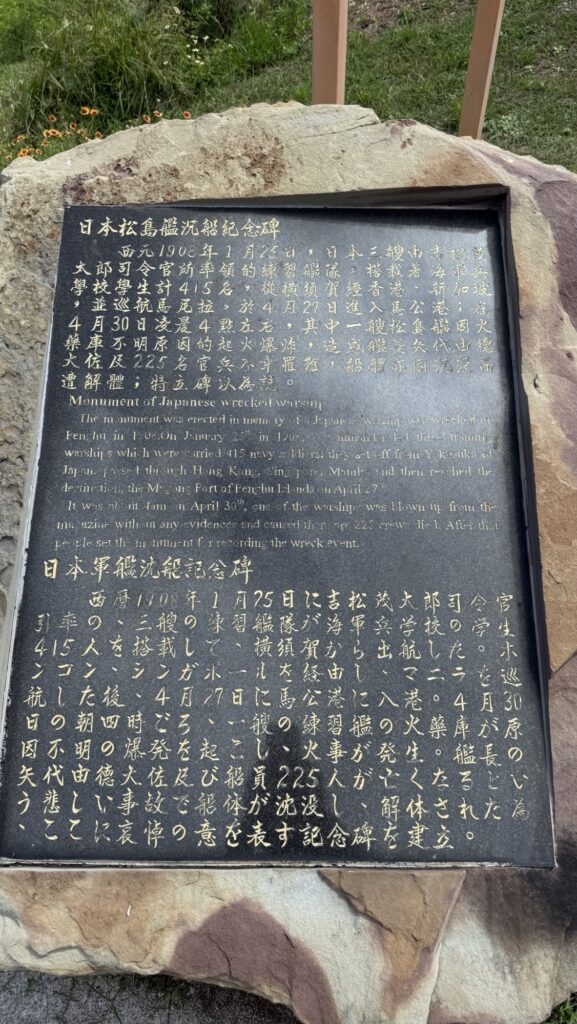 日本松島艦沉船紀念碑
西元1908年1月25日，日本三艘由吉松茂
太郎司令官所率領的練習艦隊，搭載著海軍兵
學校學生計415名，從橫須賀經香港、新加坡
，並巡航馬尼拉，於4月27日進入馬公港；在
4月30日凌晨4點左右，其中一艘松島艦因火
藥庫不明原因的起火爆炸，造成艦長矢代由德
大佐及225名官兵不幸罹難，船體亦因沉沒而
遭解體；特立碑以為誌。
Monument of Japanese wrecked warship
The monument was erected in memory of a Japanese warship was wrecked in
Penghu in 1908.On January 25th in 1908, commander led three training
warships which were carried 415 navy soldiers, they set off from Yokosuka of
Japan, passed through Hong Kong, Singapore, Manila, and then reached the
destination, the Magong Port of Penghu Islands on April 27
It was about 4am on April 30th, one of the warships was blown up from the
magazine without any evidences and caused there are 225 crews died. After that
people set the monument for recording the wreck event.
日本軍艦沈船記念碑
西暦1908年1月25日に吉松茂太郎司令官
引率の、三艘の練習艦隊が海軍兵学校の学生
415人を搭載して、横須賀から出航した。ホ
ンコン、シンガポールを経由し、マニラを巡
航した後、4月27日に馬公港に入港。4月30
日の朝四時ごろ、一艘の練習艦の火薬庫が原
因不明の爆発を起こし、火事が発生。艦長の
矢代由德大佐及び船員225人が亡くたるとい
う、悲しい事故で船体が沈没し、解体された
ここに哀悼の意を表す記念碑を建立。為